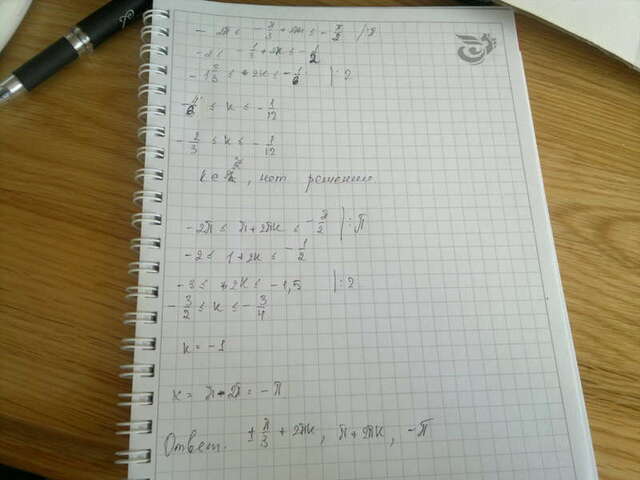 - 2π ≤ - π/3 + 2πk ≤ - π/2 /:π
- 2 ≤ - 1/3 + 2k ≤ - 1/2
- 1 2/3 ≤ + 2k ≤ - 1/6 | : 2
- 5/6 ≤ k ≤ - 1/12
- 2/3 ≤ k ≤ - 1/12
k ∈ Z, нет решений
- 2π ≤ π + 2πk ≤ - π/2 | : π
- 2 ≤ 1 + 2k ≤ - 1/2
- 3 ≤ + 2k ≤ - 1,5 | : 2
- 3/2 ≤ k ≤ - 3/4
k = - 1
x = π - 2π = - π
Ответ. ± π/3 + 2πk, π + 2πk, - π